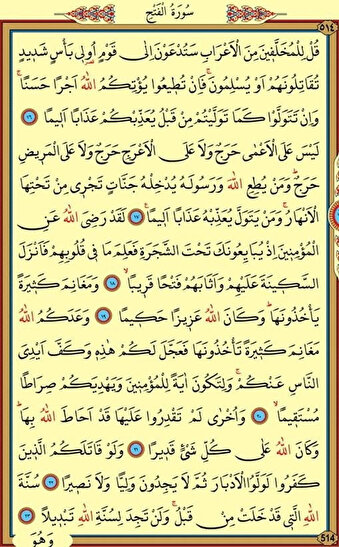 سُورَةُ الْفَتْحِ ٥١٤
قُلْ لِلْمُخَلَّفٖينَ مِنَ الْاَعْرَابِ سَتُدْعَوْنَ اِلٰى قَوْمٍ اُو۬لٖي بَأْسٍ شَدٖيدٍ
تُقَاتِلُونَهُمْ اَوْ يُسْلِمُونَۚ فَاِنْ تُطٖيعُوا يُؤْتِكُمُ اللّٰهُ اَجْرًا حَسَنًاۚ
وَاِنْ تَتَوَلَّوْا كَمَا تَوَلَّيْتُمْ مِنْ قَبْلُ يُعَذِّبْكُمْ عَذَابًا اَلٖيمًا ١٦
لَيْسَ عَلَى الْاَعْمٰى حَرَجٌ وَلَا عَلَى الْاَعْرَجِ حَرَجٌ وَلَا عَلَى الْمَرٖيضِ
حَرَجٌۜ وَمَنْ يُطِعِ اللّٰهَ وَرَسُولَهُ يُدْخِلْهُ جَنَّاتٍ تَجْرٖي مِنْ تَحْتِهَا
الْاَنْهَارُۚ وَمَنْ يَتَوَلَّ يُعَذِّبْهُ عَذَابًا اَلٖيمًا۟ ١٧ لَقَدْ رَضِيَ اللّٰهُ عَنِ
الْمُؤْمِنٖينَ اِذْ يُبَايِعُونَكَ تَحْتَ الشَّجَرَةِ فَعَلِمَ مَا فٖي قُلُوبِهِمْ فَاَنْزَلَ
السَّكٖينَةَ عَلَيْهِمْ وَاَثَابَهُمْ فَتْحًا قَرٖيبًاۙ ١٨ وَمَغَانِمَ كَثٖيرَةً
يَأْخُذُونَهَاۜ وَكَانَ اللّٰهُ عَزٖيزًا حَكٖيمًا ١٩ وَعَدَكُمُ اللّٰهُ
مَغَانِمَ كَثٖيرَةً تَأْخُذُونَهَا فَعَجَّلَ لَكُمْ هٰذِهٖ وَكَفَّ اَيْدِيَ
النَّاسِ عَنْكُمْۚ وَلِتَكُونَ اٰيَةً لِلْمُؤْمِنٖينَ وَيَهْدِيَكُمْ صِرَاطًا
مُسْتَقٖيمًاۙ ٢٠ وَاُخْرٰى لَمْ تَقْدِرُوا عَلَيْهَا قَدْ اَحَاطَ اللّٰهُ بِهَاۜ
وَكَانَ اللّٰهُ عَلٰى كُلِّ شَيْءٍ قَدٖيرًا ٢١ وَلَوْ قَاتَلَكُمُ الَّذٖينَ
كَفَرُوا لَوَلَّوُا الْاَدْبَارَ ثُمَّ لَا يَجِدُونَ وَلِيًّا وَلَا نَصٖيرًا ٢٢ سُنَّةَ
اللّٰهِ الَّتٖي قَدْ خَلَتْ مِنْ قَبْلُۚ وَلَنْ تَجِدَ لِسُنَّةِ اللّٰهِ تَبْدٖيلًا ٢٣
وَهُوَ 514